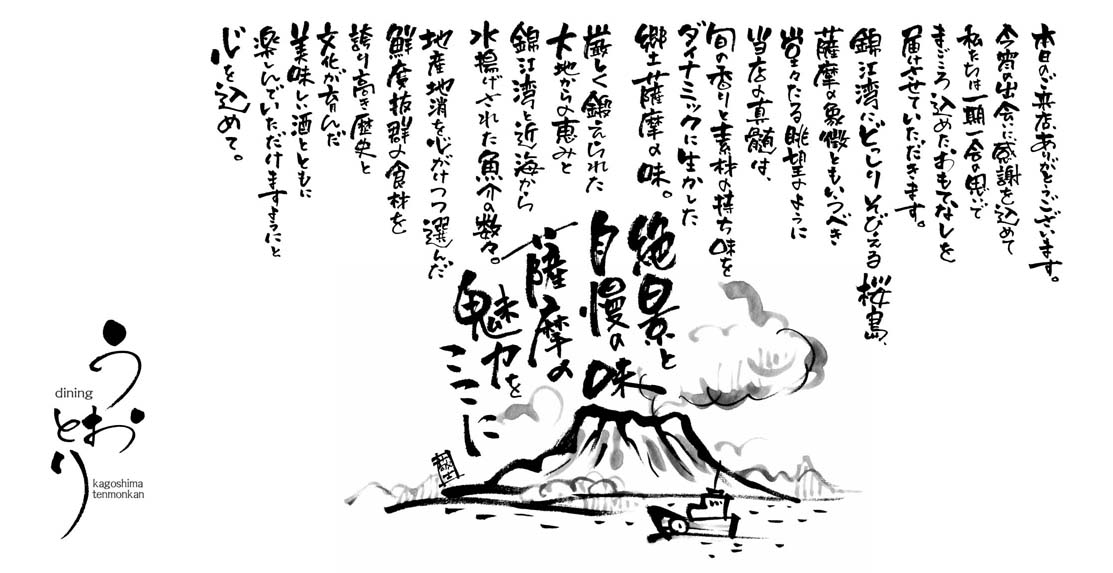 本日のご来店ありがとうございます。
今宵の出会に感謝を込めて
私たちは一期一会の思いで
まごころ込めたおもてなしを
届けさせていただきます。
錦江湾にどっしりそびえる桜島、
薩摩の象徴ともいうべき
堂々たる眺望のように
当店の真髄は、
旬の香りと素材の持ち味を
ダイナミックに生かした
郷土薩摩の味。
厳しく鍛えられた
大地からの恵みと
錦江湾と近海から
水揚げされた魚介の数々。
地産地消を心がけつつ選んだ
鮮度抜群の食材を
誇り高き歴史と
文化が育んだ
美味しい酒とともに
楽しんでいただけますようにと
心を込めて。
絶景と
自慢の味
薩摩の
魅力を
ここに
dining
うおとり
kagoshima
tenmonkan